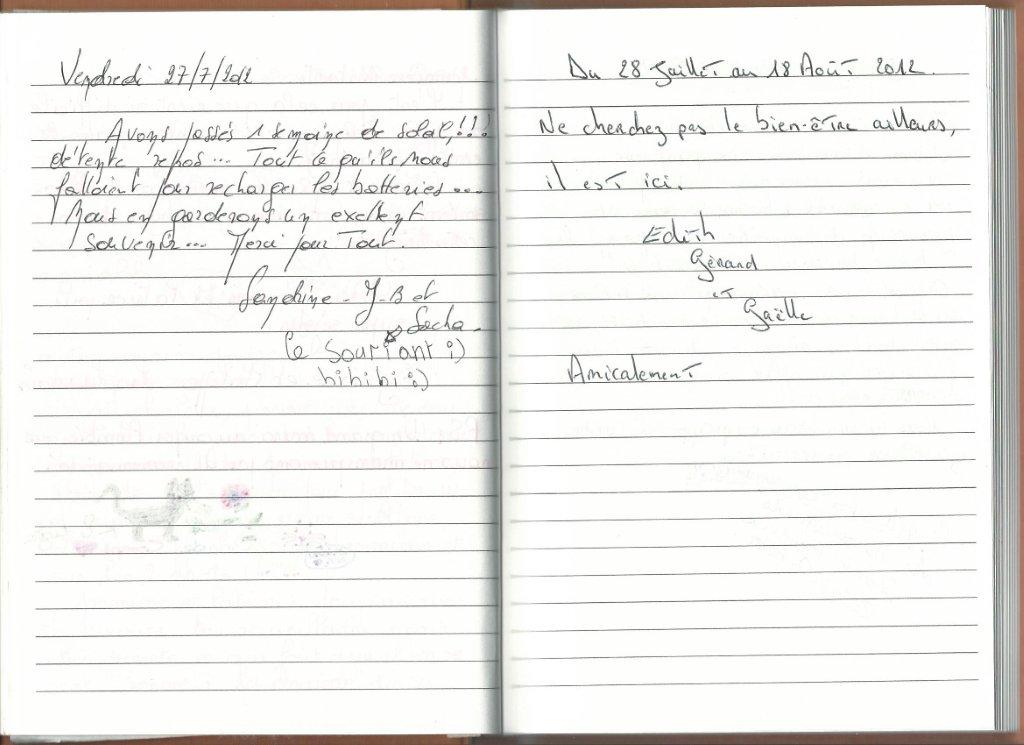 Vendredi 27/7/2012
Avons passés 1 semaine de soleil!!!
détente, repos... Tout ce qu'ils nous
fallaient pour recharger les batteries...
Nous en garderons un excellent
souvenir... Merci pour Tout.
Sandrine - J-B et
Sacha.
le souriant :)
hihihi :)
Du 28 Juillet au 18 Août 2012.
Ne cherchez pas le bien-être ailleurs,
il est ici.
Edith
Gérard
et
Gaëlle
Amicalement